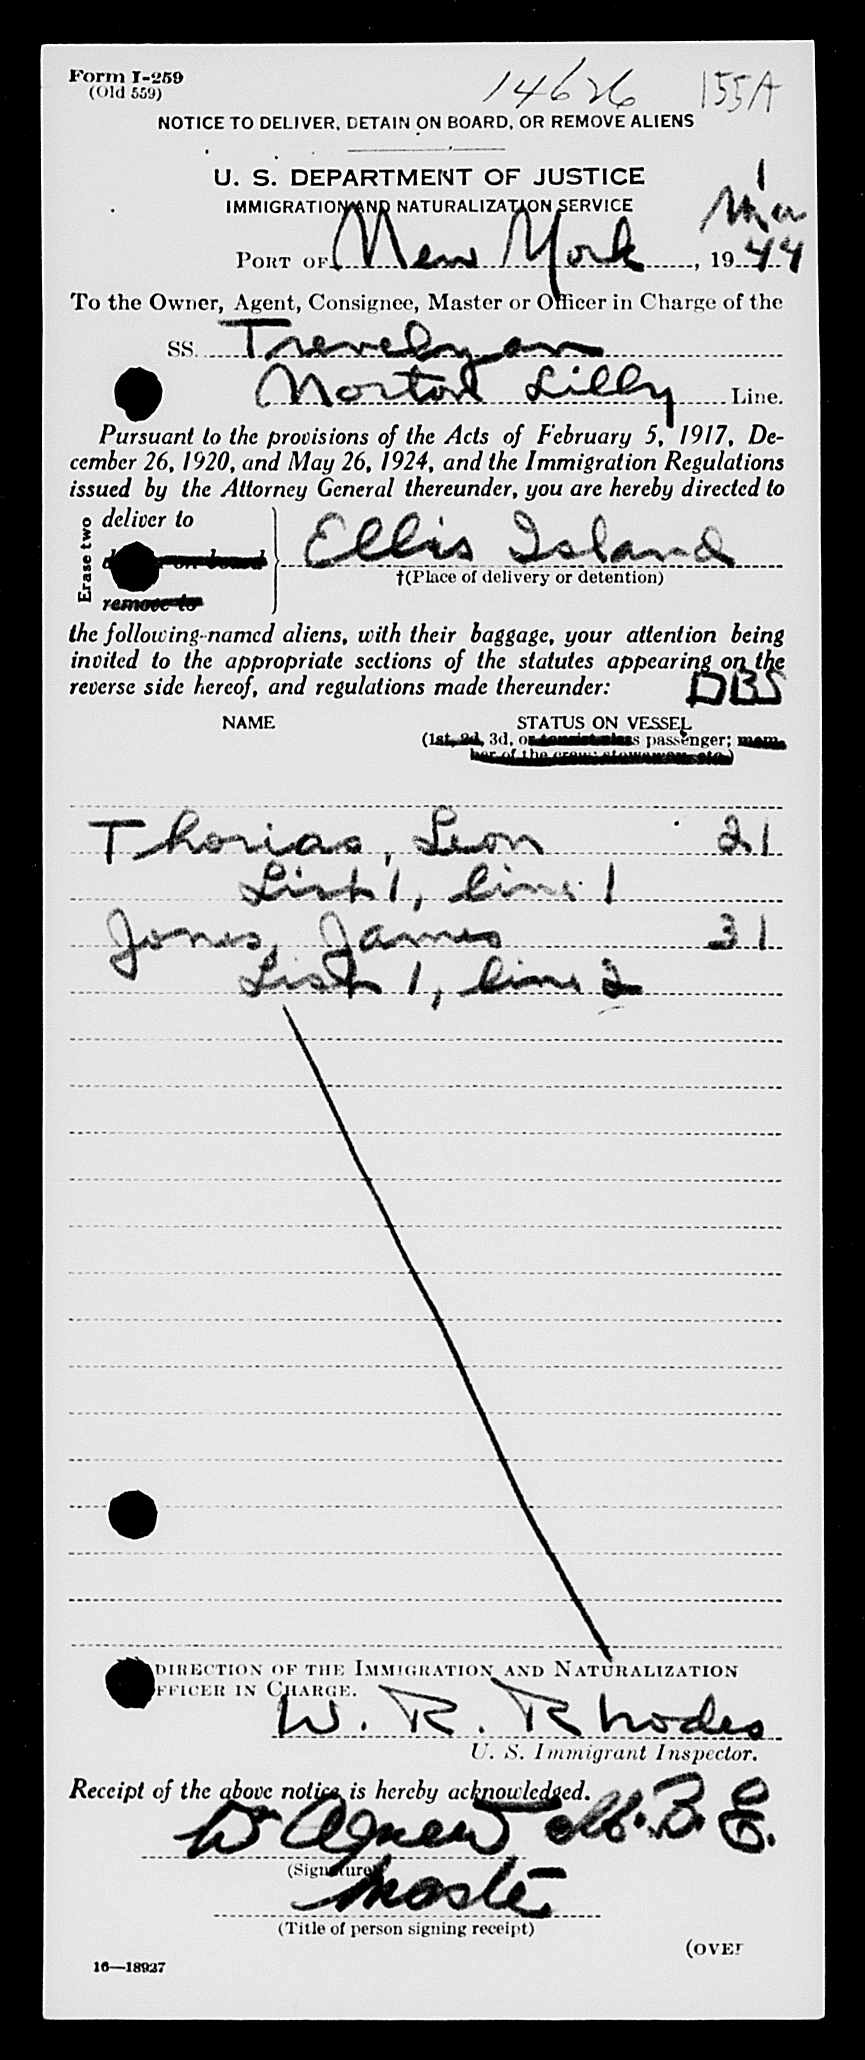 Form I-259
(Old 559)
14626 155A
NOTICE TO DELIVER, DETAIN ON BOARD, OR REMOVE ALIENS
U. S. DEPARTMENT OF JUSTICE
IMMIGRATION AND NATURALIZATION SERVICE
1
Mar
PORT OF New York, 1944
To the Owner, Agent, Consignee, Master or Officer in Charge of the
SS. Trevelyan
Norton Lilly Line.
Pursuant to the provisions of the Acts of February 5, 1917, De-
cember 26, 1920, and May 26, 1924, and the Immigration Regulations
issued by the Attorney General thereunder, you are hereby directed to
Erase two
deliver to
on board
remove to
Ellis Island
†(Place of delivery or detention)
the following-named aliens, with their baggage, your attention being
invited to the appropriate sections of the statutes appearing on the
reverse side hereof, and regulations made thereunder:
DBS
NAME STATUS ON VESSEL
(1st, 2d, 3d, or tourist class passenger; mem-
ber of the crew; stowaway, etc.)
Thorias, Leon 21
List 1, line 1
Jones, James 31
List 1, line 2
DIRECTION OF THE IMMIGRATION AND NATURALIZATION
FFICER IN CHARGE.
W. R. Rhodes
U. S. Immigrant Inspector.
Receipt of the above notice is hereby acknowledged.
W Agnew M.B.E.
(Signature)
Master
(Title of person signing receipt)
(OVER
16—18927